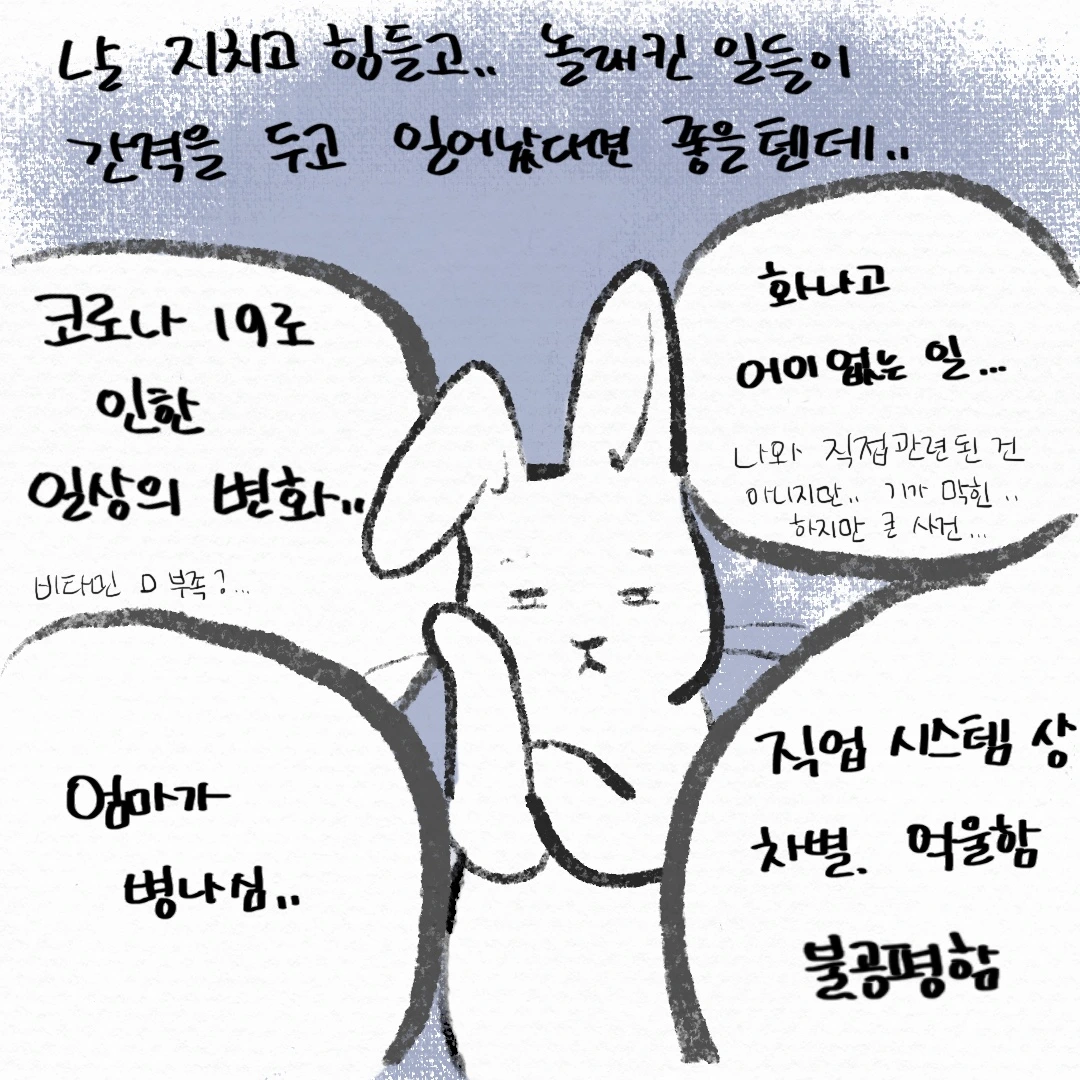 날 지치고 힘들고.. 놀래킨 일들이
간격을 두고 일어났다면 좋을텐데..
코로나 19로
인한
일상의 변화..
비타민 D 부족?...
화나고
어이없는 일...
나와 직접관련된 건
아니지만.. 기가 막힌..
하지만 큰 사건...
엄마가
병나심..
직업 시스템 상
차별. 억울함
불공평함